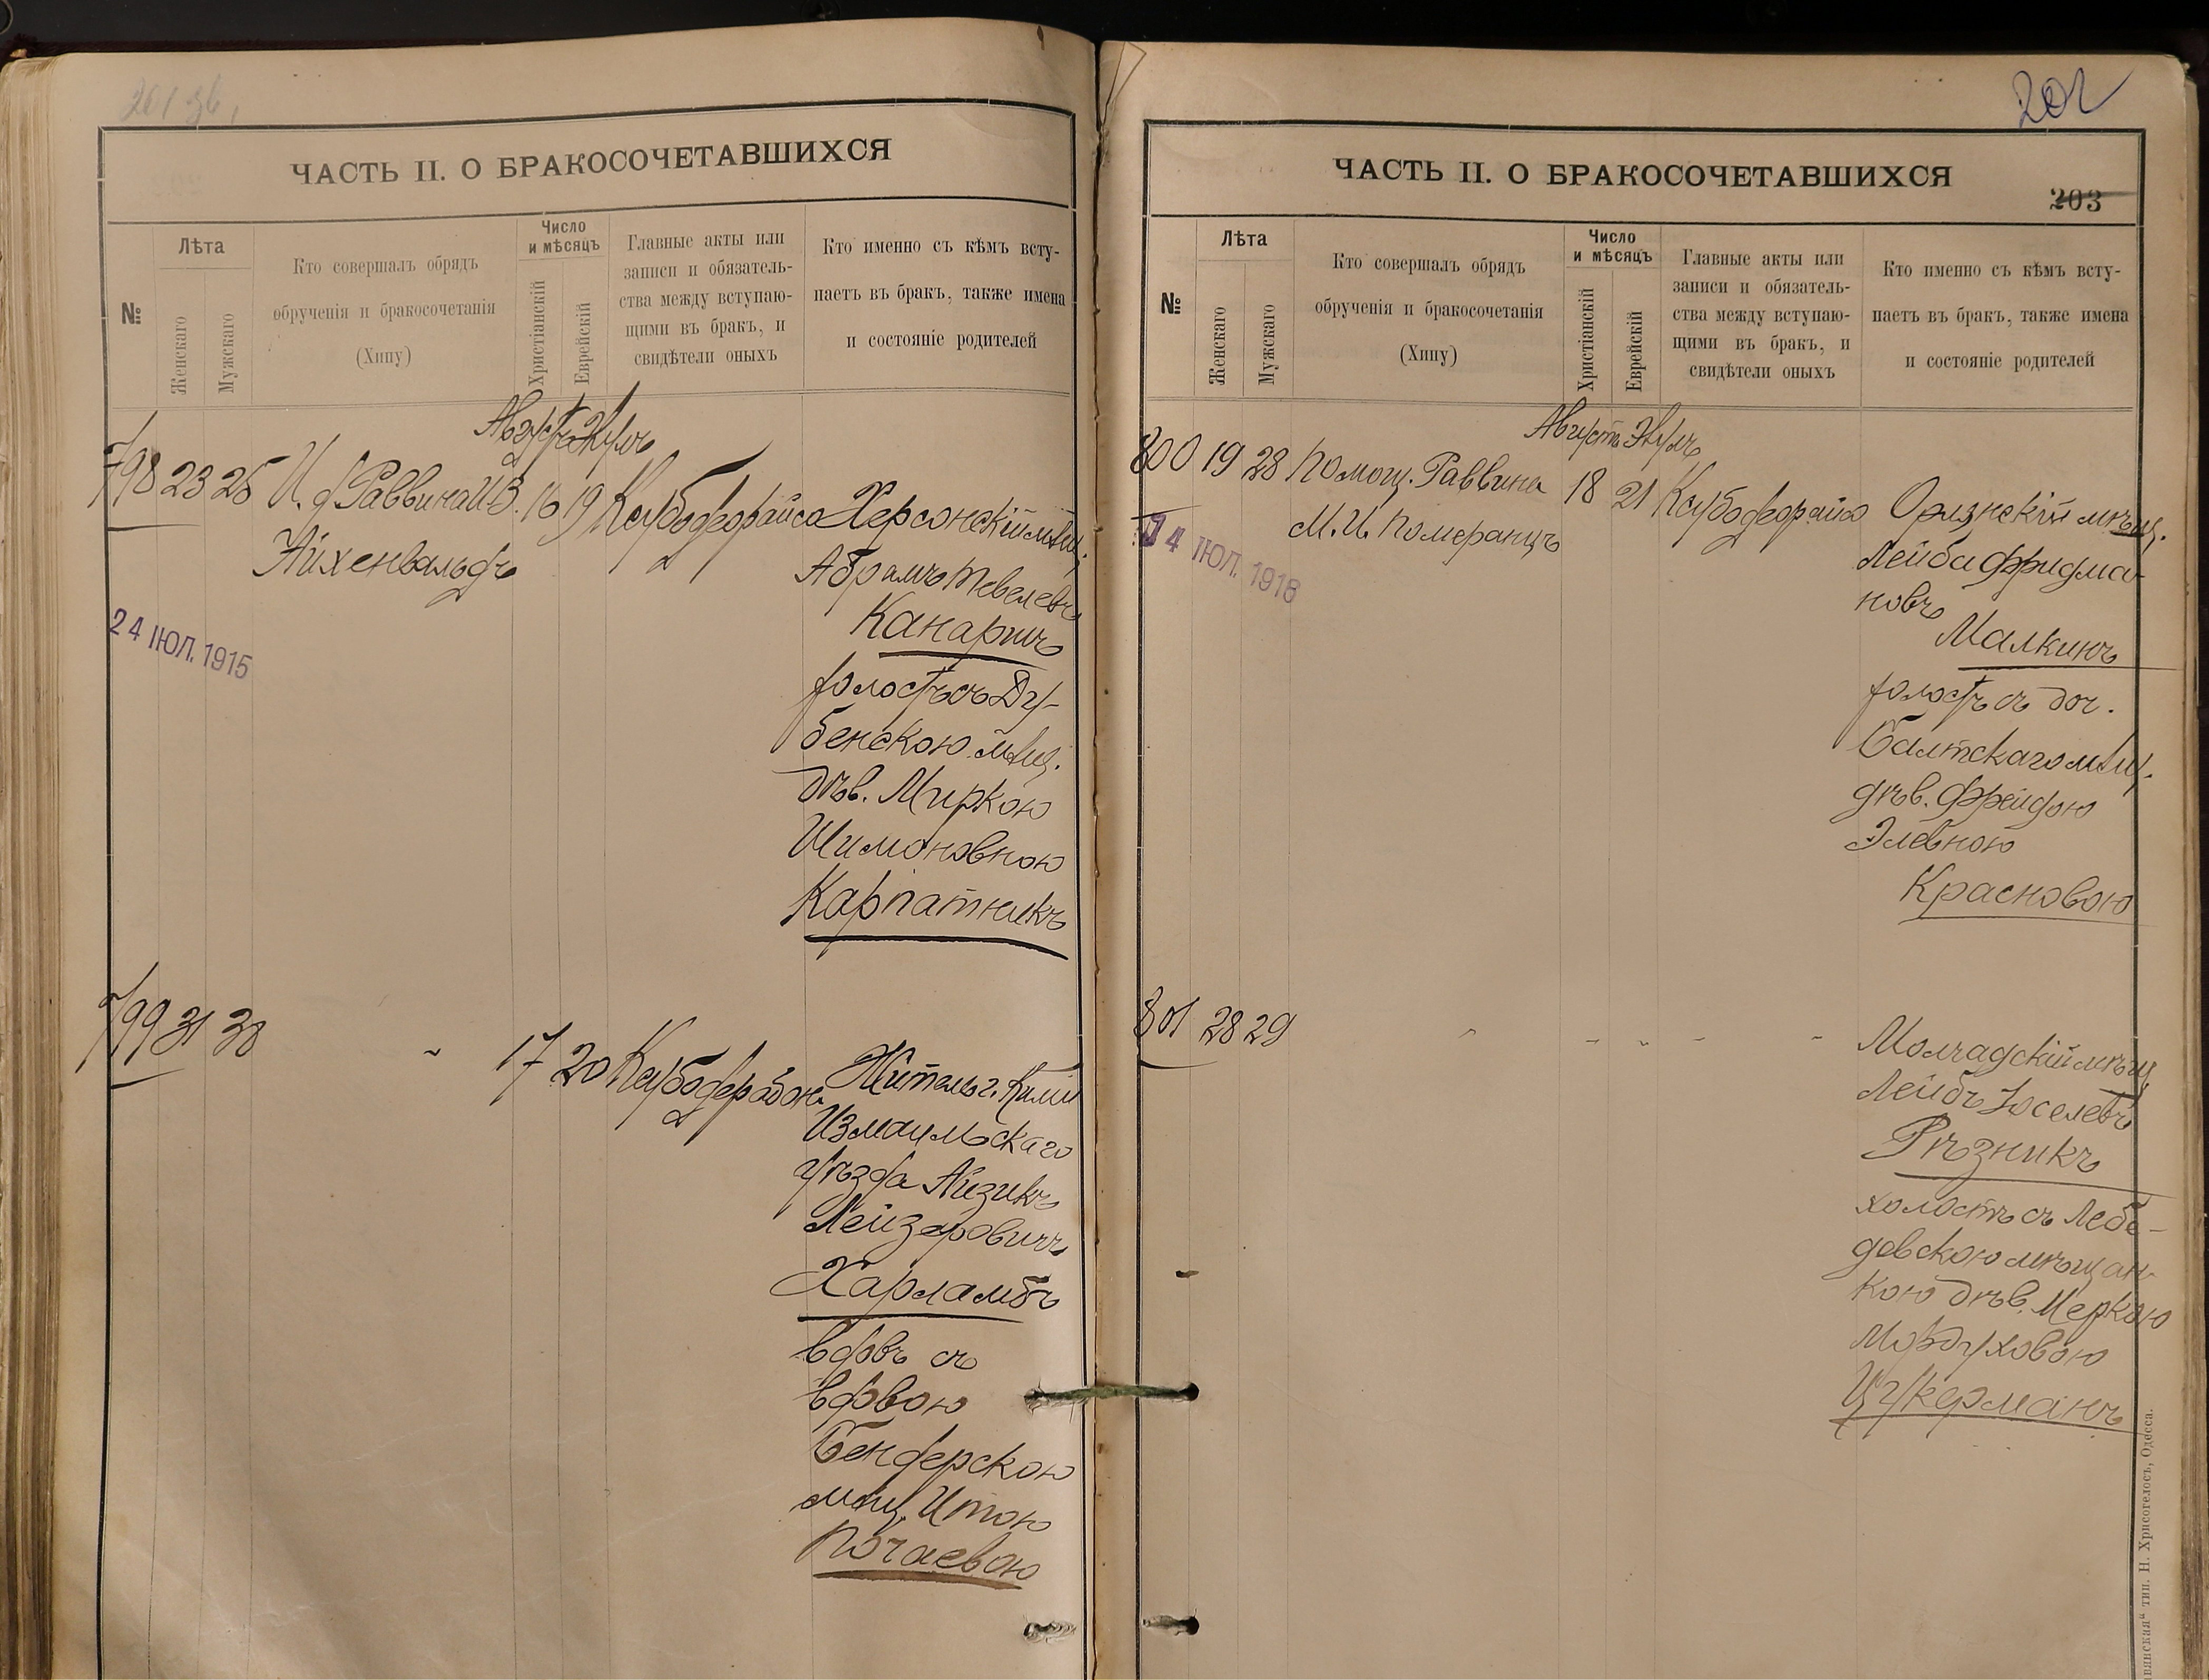 202
ЧАСТЬ II. О БРАКОСОЧЕТАВШИХСЯ
№
Лѣта
Женскаго
Мужскаго
Кто совершалъ обрядъ
обрученія и бракосочетанія
(Хипу)
Число
и мѣсяцъ
Христіанскій
Еврейскій
Главные акты или
записи и обязатель-
ства между вступаю-
щими въ бракъ, и
свидѣтели оныхъ
Кто именно съ кѣмъ всту-
паетъ въ бракъ, также имена
и состояніе родителей
Августъ Элулъ
798 23 25 И. д. Раввина И.В. 16 19 Ксубо
Айхенвальдъ
24 ІЮЛ. 1915
Херсонскій мѣщ.
Абрамъ Тевелевъ
Канаричъ
холостъ съ Ду-
бенскою мѣщ.
дѣв. Миркою
Шимоновною
Карпатникъ
799 31 38 17 20 Ксубо
Житель г.
Измаильскаго
уѣзда Айзикъ
Лейзеровичъ
Харламбъ
вдовъ съ
вдовою
Бендерскою
мѣщ. Итою
Почаевою
ЧАСТЬ II. О БРАКОСОЧЕТАВШИХСЯ
203
№
Лѣта
Женскаго
Мужскаго
Кто совершалъ обрядъ
обрученія и бракосочетанія
(Хипу)
Число
и мѣсяцъ
Христіанскій
Еврейскій
Главные акты или
записи и обязатель-
ства между вступаю-
щими въ бракъ, и
свидѣтели оныхъ
Кто именно съ кѣмъ всту-
паетъ въ бракъ, также имена
и состояніе родителей
Августъ Элулъ
800 19 28 Помощ. Раввина 18 21 Ксубо
М. И. Померанцъ
ІЮЛ. 1918
мѣщ.
Лейба Фридма-
новъ
Малкинъ
холостъ съ доч.
Балтскаго мѣщ.
дѣв. Фрейдою
Элевною
Красновою
801 28 29
Молчадскій мѣщ
Лейбъ Іоселевъ
Рѣзникъ
холостъ съ Лебе-
девскою мѣщан-
кою дѣв. Меркою
Мордуховою
Цукерманъ
тип. Н. Хрисогелосъ, Одесса.